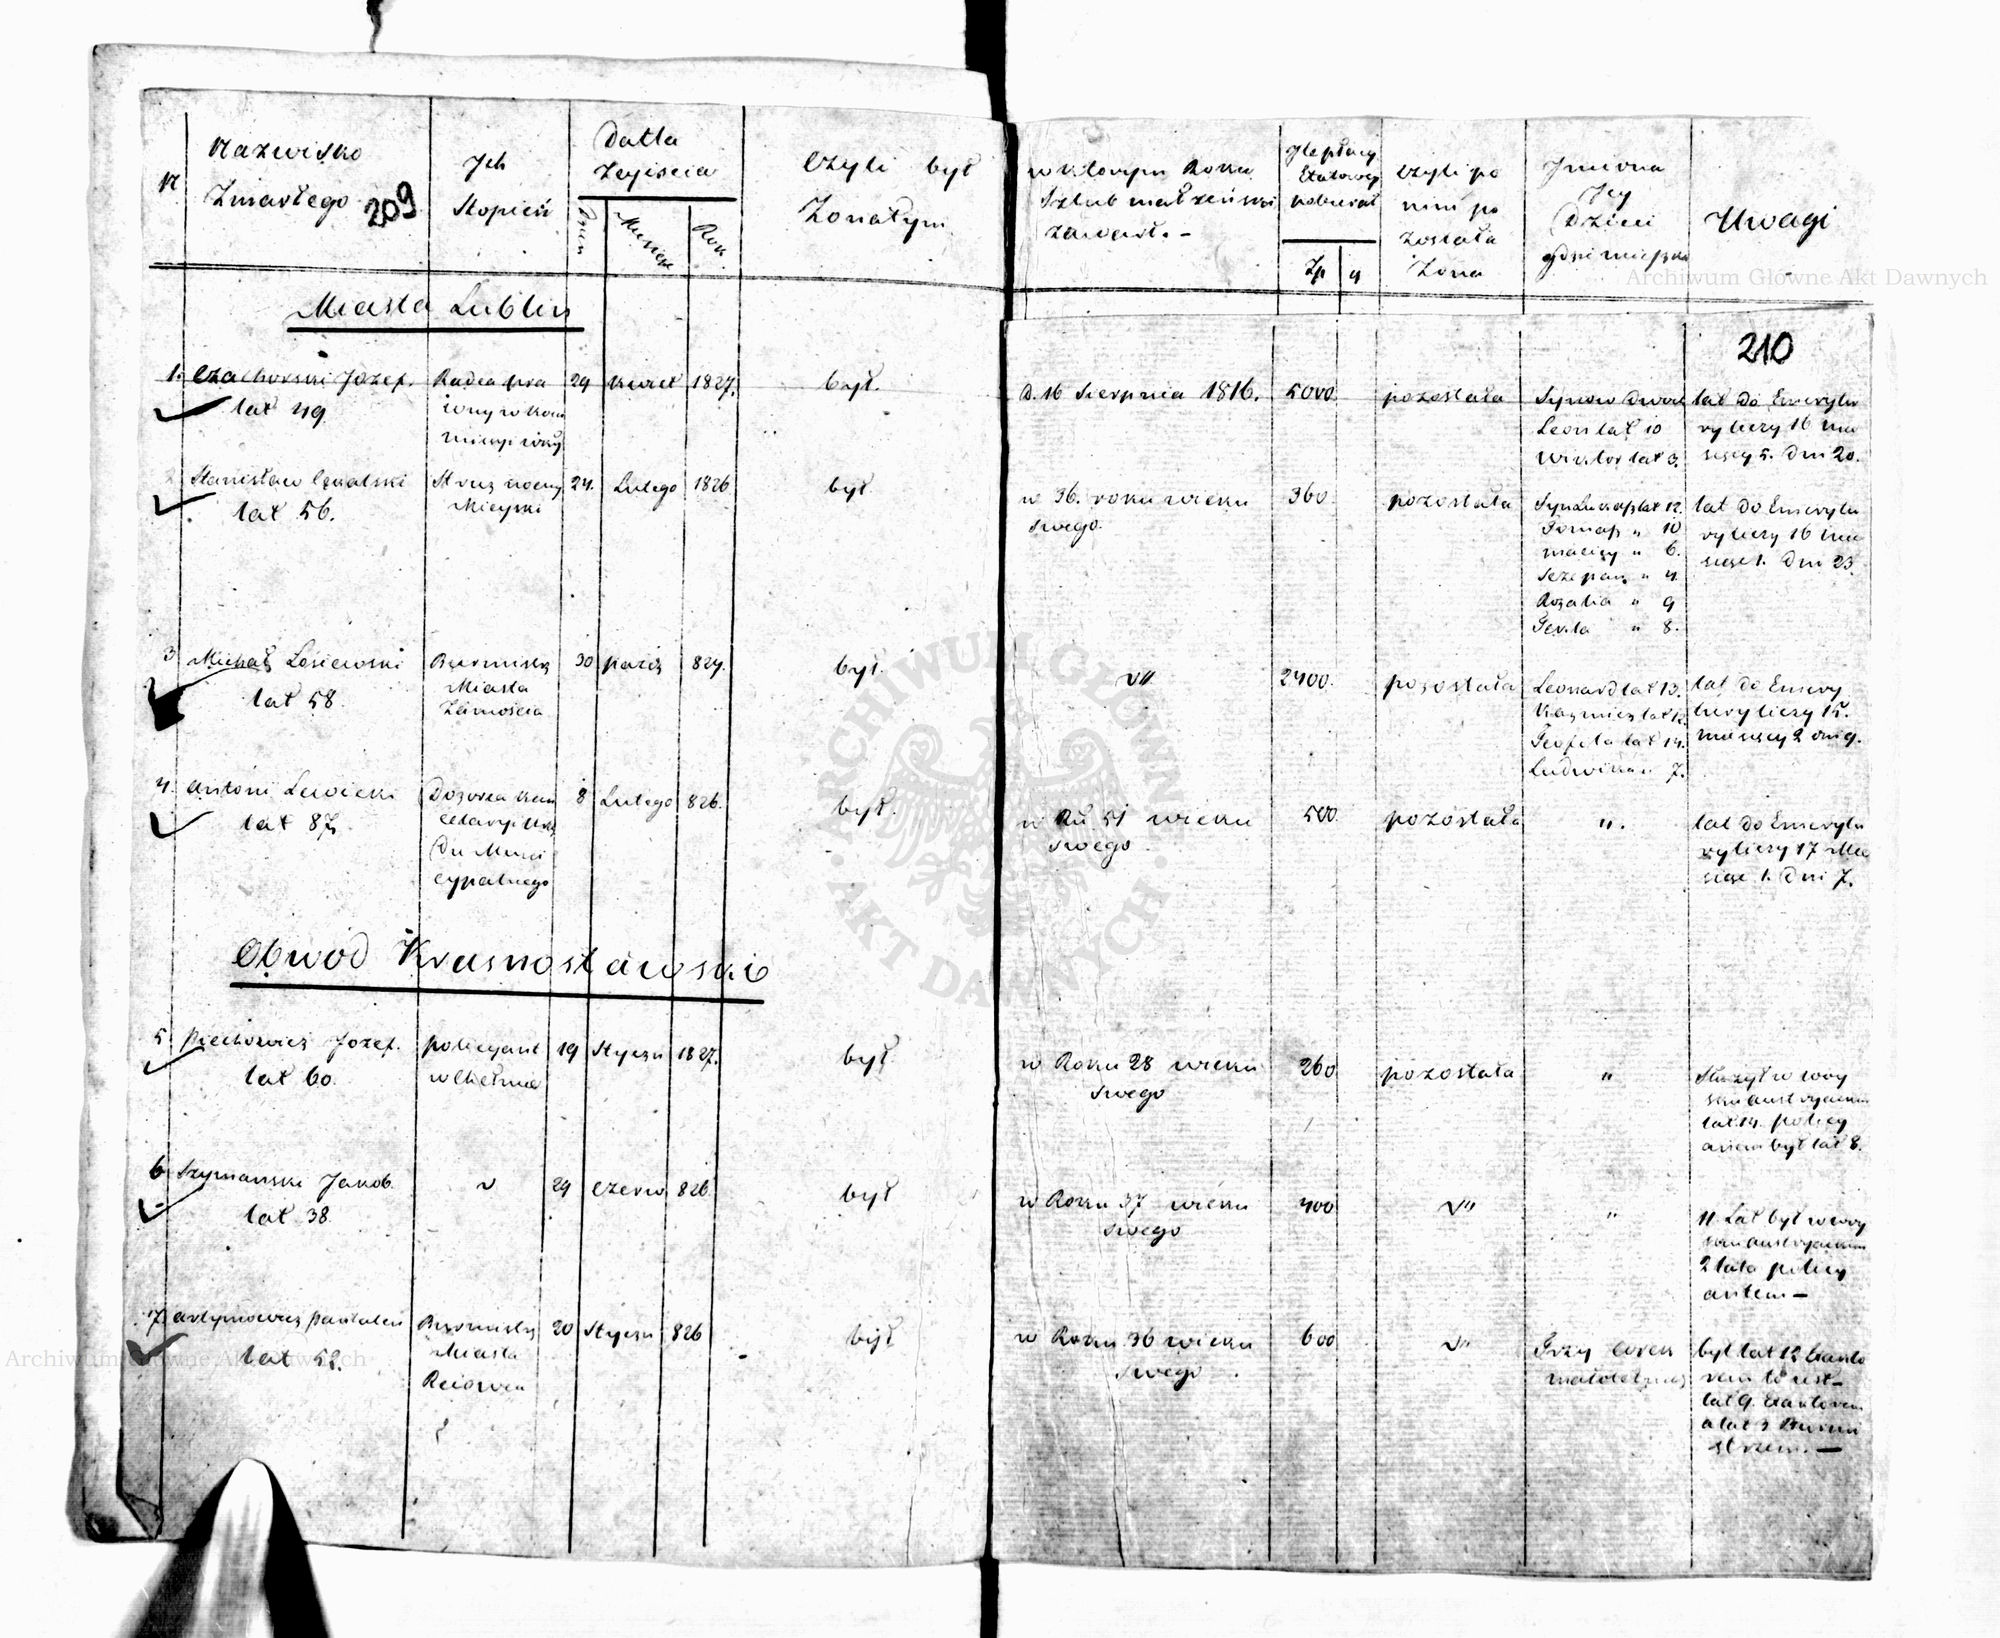 N
Nazwisko
Zmarłego
209
Jch
Stopień
Datta
Zeyścia
Dzien
Miesiąc
Rok
Czyli był
Zonatym
w którym Roku
Szlub małżeński
zawarł. -
Jle płacy
Etatowey
pobierał
Zp
g
czyli po
nim po
została
Zona
Jmiona
Jey
Dzieci
Uwagi
Miasta Lublin
210
1. Czachorski Jozef.
lat 49
Radca
29
Kwiet
1827.
był.
D. 16 Sierpnia 1816.
5000
pozostała
Synow dwoch
Leon lat 10
Wiktor lat 3.
lat do Emerytu
ry liczy 16 mie
sięcy 5. dni 20.
2 Stanisław
lat 56.
Stroz nocny
Mieyski
24.
Lutego
1826
był.
w 36. roku wieku
swego.
360
pozostała
Syn Łukasz lat 12.
Tomasz " 10
Maciey " 6.
Szczepan " 4.
Rozalia " 9
Tekla " 8.
lat do Emerytu
ry liczy 16 mie
siąc 1. Dni 23.
3 Michał Łosiewski
lat 58
Burmistrz
Miasta
Zamościa
30
pazdz
824.
był.
"
2400.
pozostała
Leonard lat 13.
Kazmierz lat 12.
Teofila lat 14.
Ludwika " 7.
lat do Emery
tury liczy 15.
miesięcy 2 dni 9.
4. Antoni Lewicki
lat 87.
Dozorca Kan
cellaryi Urzę
Du Muni
cypalnego
8
Lutego
826.
był.
w Rku 51 wieku
swego
500
pozostała
".
lat do Emerytu
ry liczy 17 Mie
siąc 1. Dni 7.
Obwód Krasnostawski
5 Piechowicz Jozef.
lat 60.
policyant
w Chełmie
19
Styczn
1827.
był
w Roku 28 wieku
swego
260
pozostała
"
Służył w woy
sku austryackim
lat 14. policy
antem był lat 8.
6 Szymanski Jakob.
lat 38.
"
29
Czerw
826
był
w Roku 37 wieku
swego
400
"
"
11 Lat był w woy
sku austryackim
2 lata policy
antem —
7. Artymowicz Pantaleon
lat 52.
Burmistrz
Miasta
Reiowca
20
Styczn
826
był
w Roku 36 wieku
swego
600
"
Trzy corek
małoletnich
był lat 12
lat 9.
a lat 3 Burmi
strzem. —
Archiwum Główne Akt Dawnych
ARCHIWUM GŁÓWNE
• AKT DAWNYCH •
Archiwum Główne Akt Dawnych